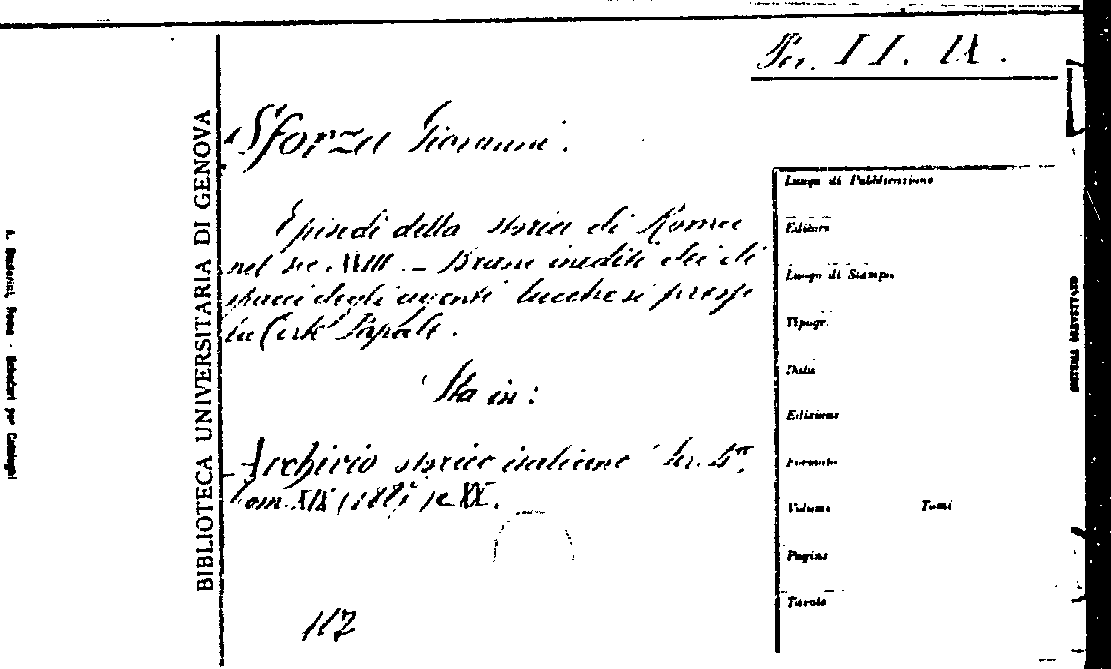 Per. II. IX.
Sforza Giovanni.
Episodi della storia di Roma
nel sec. XVIII. - Brani inediti dei di
spacci degli agenti lucchesi presso
la Corte Papale.
Sta in:
Archivio storico italiano Ser. 4ª.
tom. XIX (1887) e XX.
117
BIBLIOTECA UNIVERSITARIA DI GENOVA
Luogo di Pubblicazione
Editore
Luogo di Stampa
Tipogr.
Data
Edizione
Formato
Volume Tomi
Pagine
Tavole
Roma - Schedari per Cataloghi